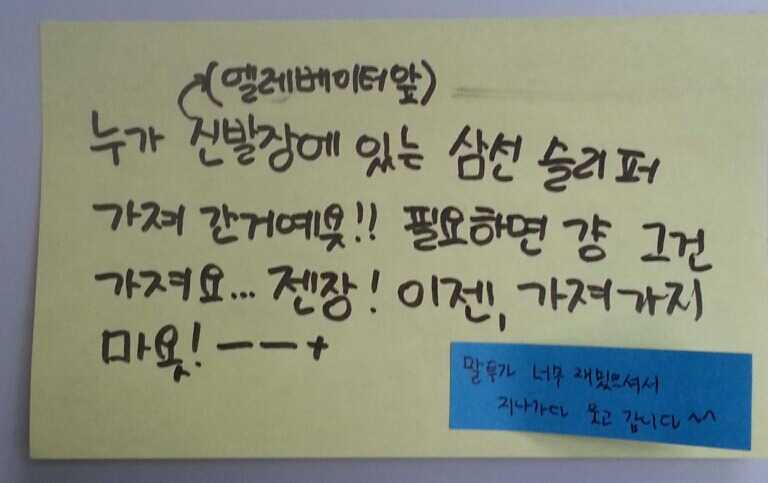 (엘레베이터앞)
누가 신발장에 있는 삼선 슬리퍼
가져 간거예욧!! 필요하면 걍 그건
가져요... 젠장! 이젠, 가져가지
마욧! ㅡㅡ+
말투가 너무 재밌으셔서
지나가다 웃고 갑니다 ~^^